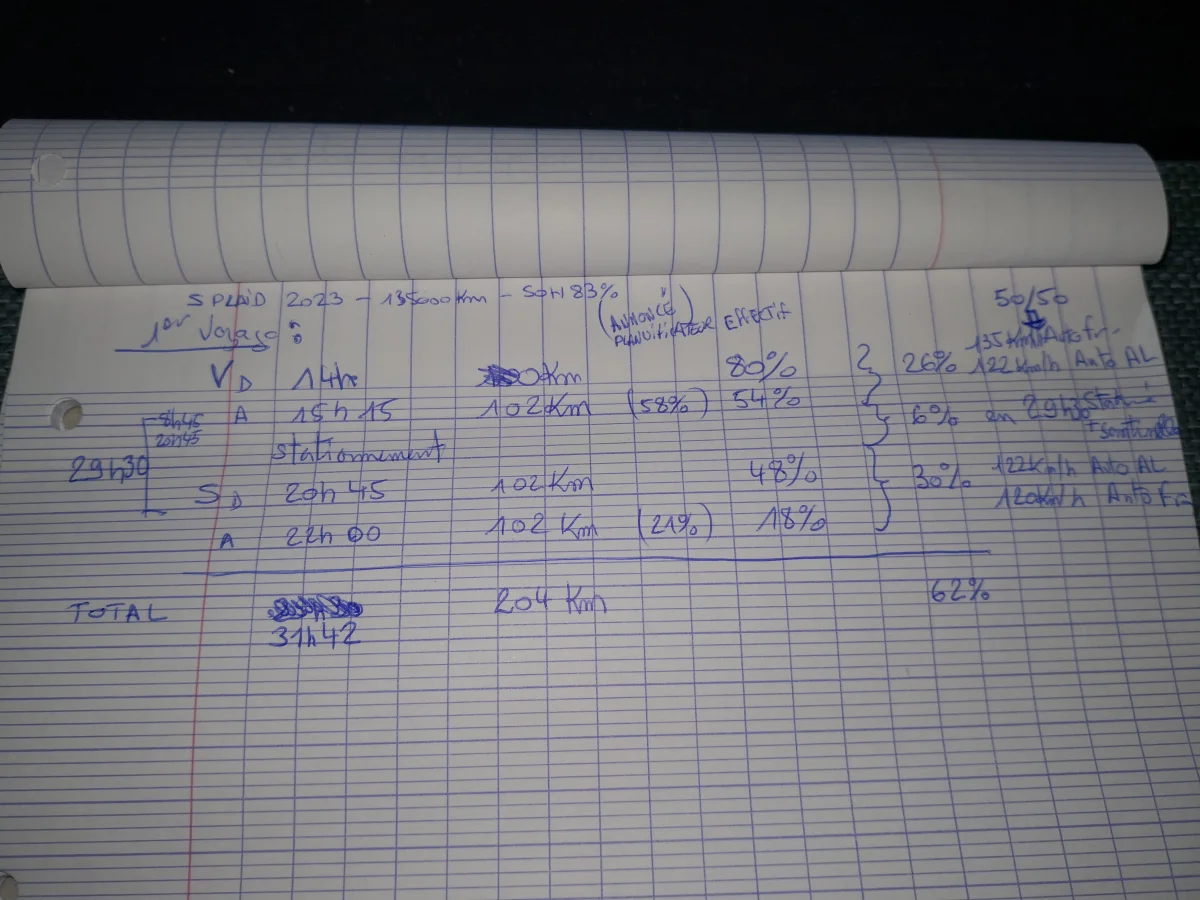 S PLAID 2023 - 135000 Km - SOH 83%
1er Voyage : (ANNONCÉ PLANIFICATEUR) EFFECTIF 50/50
135 Km/h Auto Fr
V D 14h 0 Km 80% 26% 122 Km/h Auto AL
A 15h15 102 Km (58%) 54%
8h45 6% en 29h30
20h45 + sentinelle
29h30 stationnement
S D 20h45 102 Km 48% 30% 122 Km/h Auto AL
120 Km/h Auto Fr
A 22h00 102 Km (21%) 18%
TOTAL 204 Km 62%
31h42